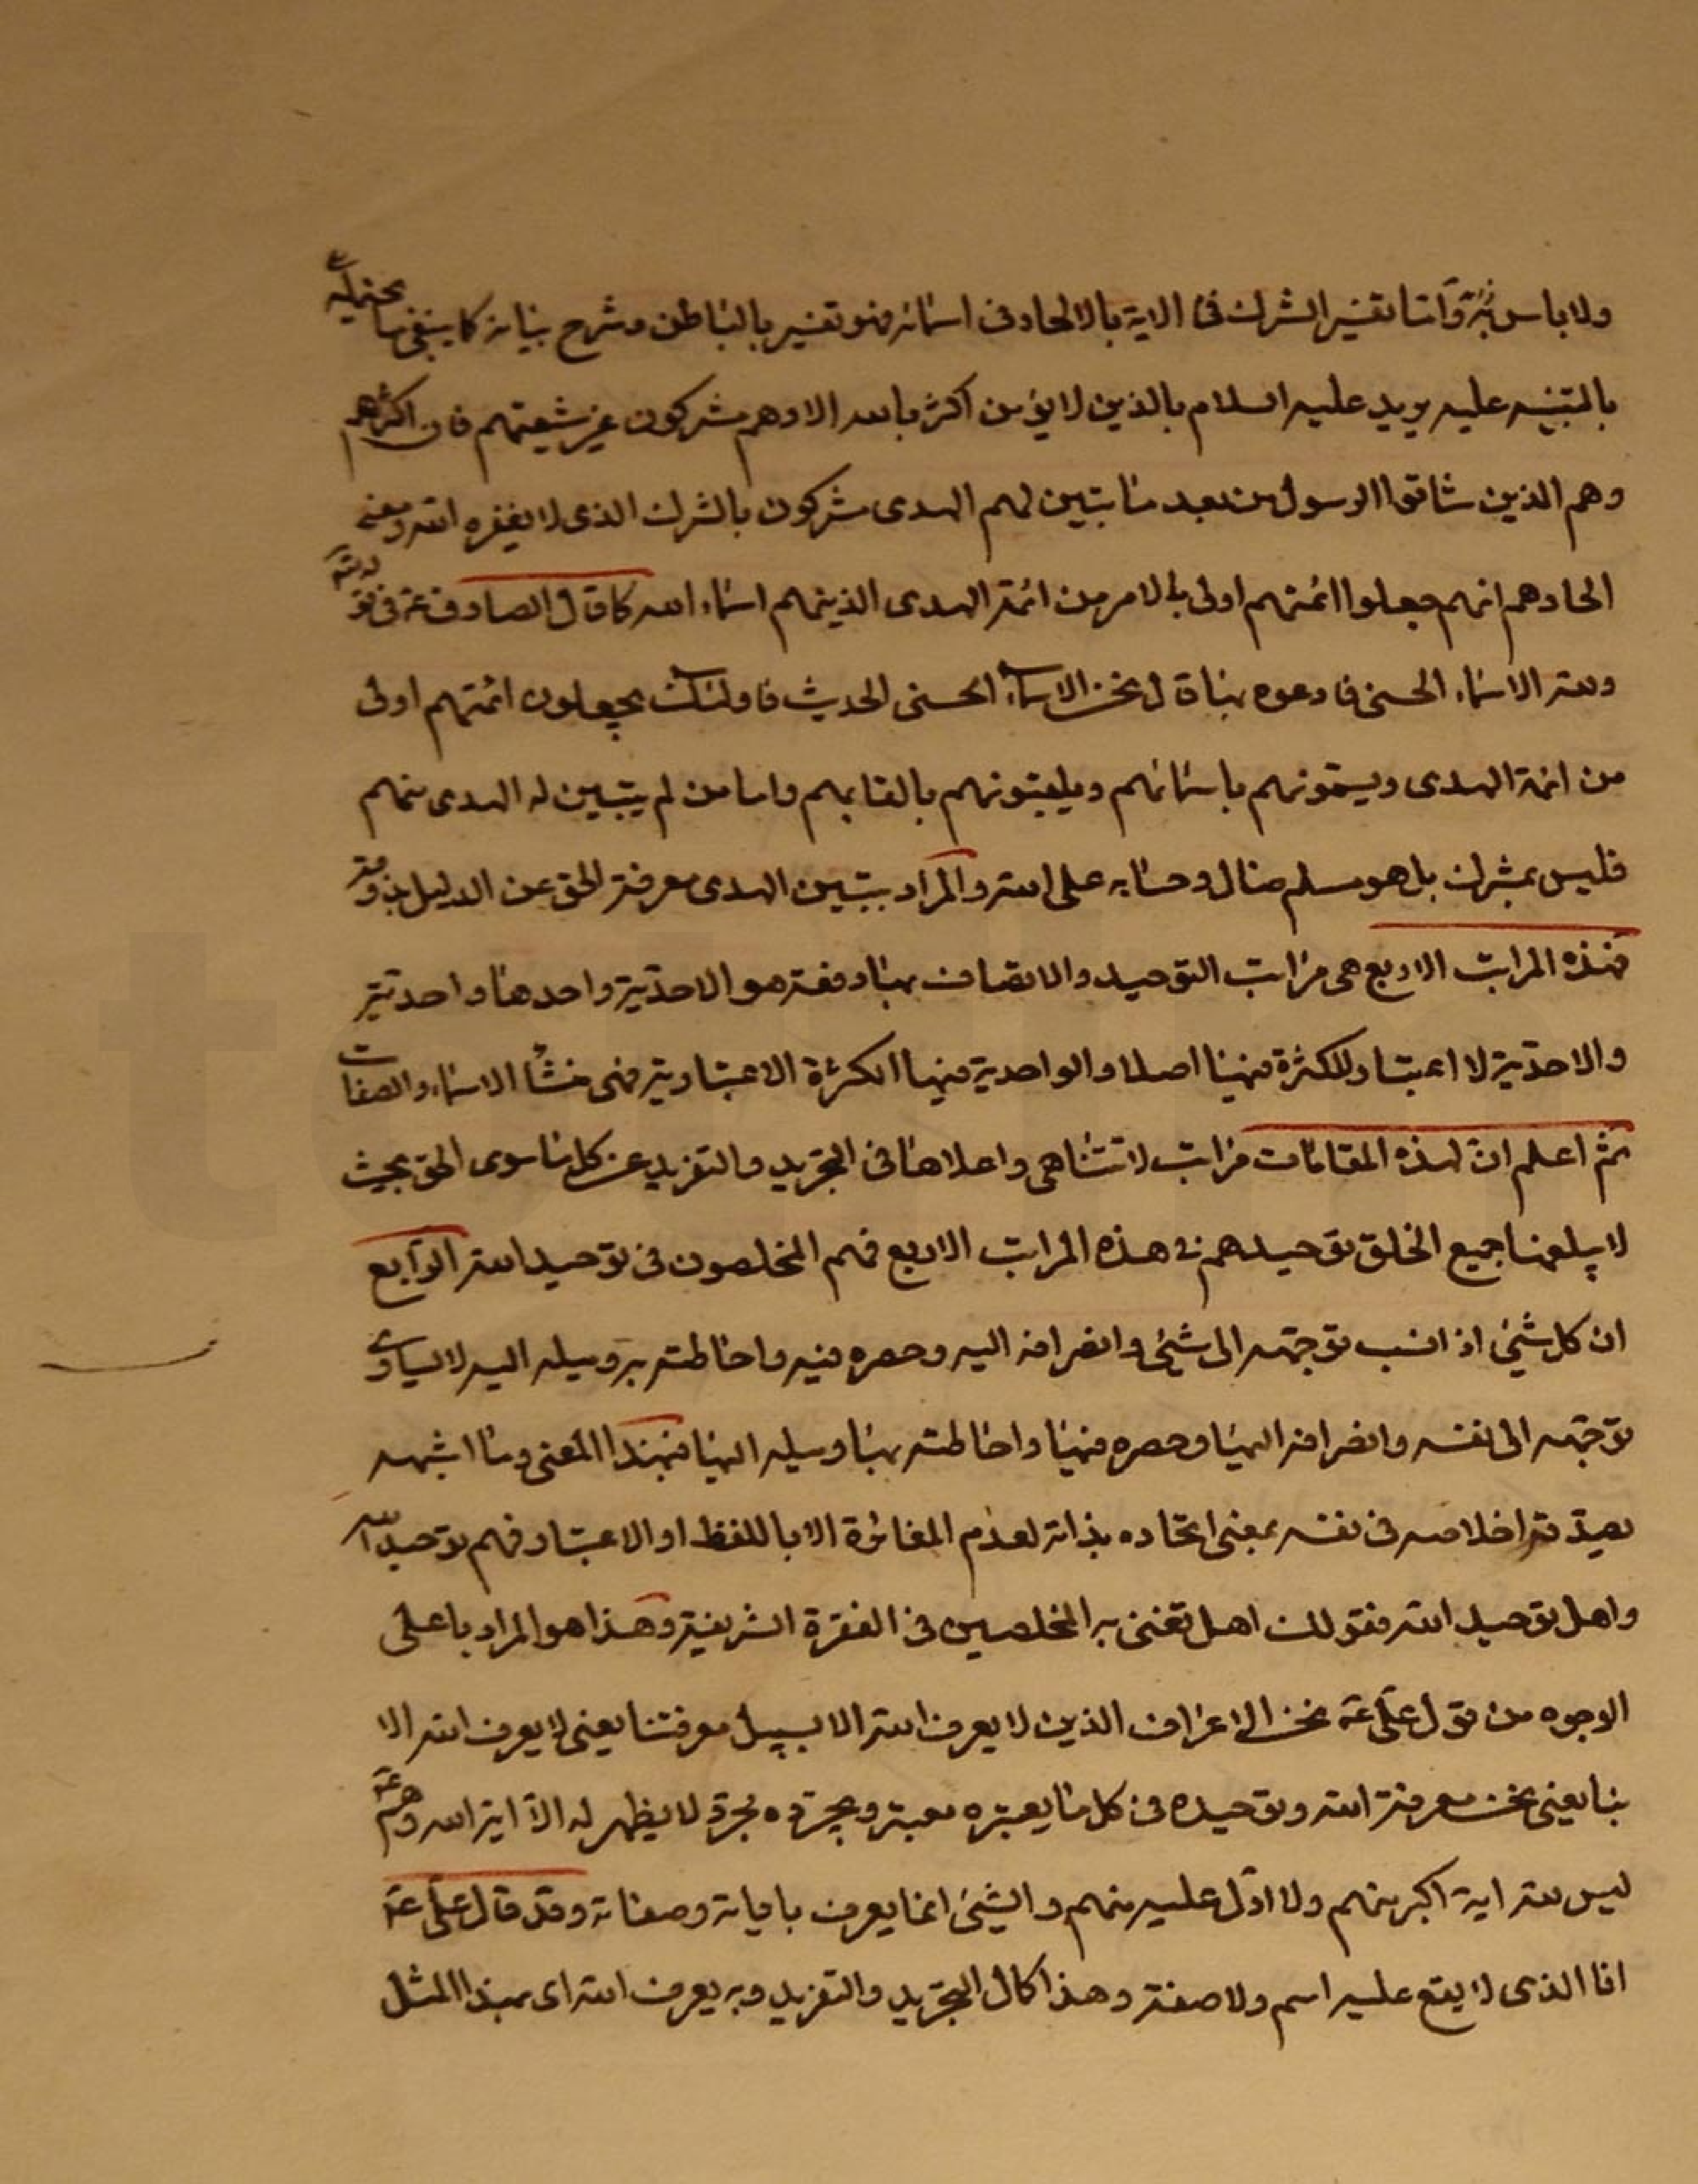 ولا باس به واما تفسير الشرك فى الاية بالالحاد فى اسمائه فهو تفسير بالباطن وشرح بيانه كما ينبغى
بالتنبيه عليه يريد عليه السلام بالذين لا يؤمن اكثر بالله الا وهم مشركون غير شيعتهم فان اكثرهم
وهم الذين شاقوا الرسول من بعد ما تبين لهم الهدى مشركون بالشرك الذى لا يغفره الله ومعنى
الحادهم انهم جعلوا ائمتهم اولى بالامر من ائمة الهدى الذينهم اسماء الله كما قال الصادق عه فى قوله
ولله الاسماء الحسنى فادعوه بها قال نحن الاسماء الحسنى الحديث فاولئك يجعلون ائمتهم اولى
من ائمة الهدى ويسمونهم باسمائهم ويلقبونهم بالقابهم واما من لم يتبين له الهدى منهم
فليس بمشرك بل هو مسلم ضال وحسابه على الله والمراد بتبين الهدى معرفة الحق عن الدليل
فهذه المراتب الاربع هى مراتب التوحيد والاتصاف بها دفعة هو الاحدية واحدها واحدية
والاحدية لا اعتبار للكثرة فيها اصلا والواحدية فيها الكثرة الاعتبارية فهى منشأ الاسماء والصفات
ثم اعلم ان لهذه المقامات مراتب لا تتناهى واعلاها فى التجريد والتفريد عن كل ما سوى الحق بحيث
لا يبلغها جميع الخلق توحيدهم فى هذه المراتب الاربع فهم المخلصون فى توحيد الله الرابع
ان كل شيئ اذ انسب توجهه الى شيئ وانصرافه اليه وحصره فيه واحاطته به وميله اليه لا يساوى
توجهه الى نفسه وانصرافه اليها وحصره فيها واحاطته بها وميله اليها فبهذا المعنى وما اشبهه
اخلاصه فى نفسه بمعنى اتحاده بذاته لعدم المغائرة الا باللفظ او الاعتبار فهم توحيد الله
واهل توحيد الله فقولك اهل تعنى به المخلصين فى الفقرة الشريفة وهذا هو المراد باعلى
الوجوه من قول على عه نحن الاعراف الذين لا يعرف الله الا بسبيل معرفتنا يعنى لا يعرف الله الا
بنا يعنى نحن معرفة الله وتوحيده فى كل ما يعتبره معتبر ويجرده مجرد لا يظهر له الا اية الله وهم عه
ليس لله اية اكبر منهم ولا ادل عليه منهم والشيئ انما يعرف باياته وصفاته وقد قال على عه
انا الذى لا يقع عليه اسم ولا صفة وهذا كمال التجريد والتفريد وبه يعرف الله اى بهذا المثل